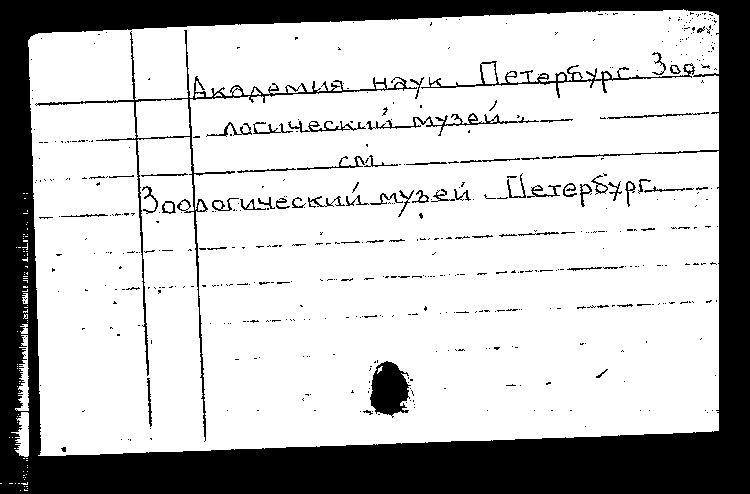 Академия наук. Петербург. Зоо-
логический музей.
см.
Зоологический музей. Петербург.